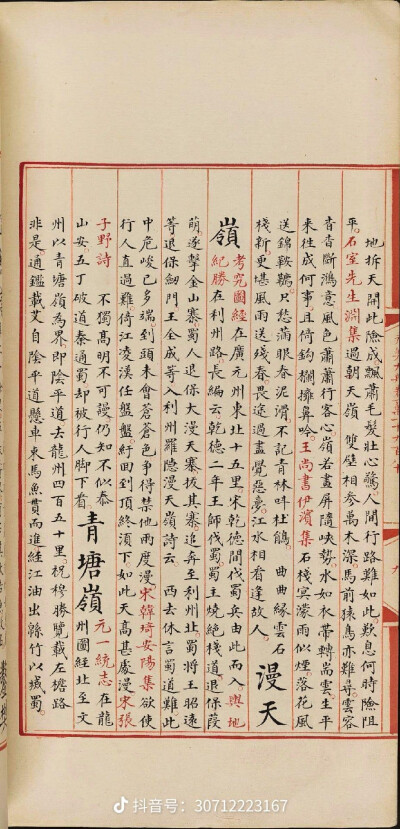 地拆天開此險成飄蕭毛髮壯心驚人間行路難如此歎息何時險阻
平石室先生淵集過朝天嶺 雙壁相參萬木深馬前猿鳥亦難尋雲容
杳杳斷鴻意風色蕭蕭行客心嶺若畫屏隨峽勢水如衣帶轉嵓雲生平
來往成何事且倚鈎欄擁鼻吟王尚書伊濱集石棧冥濛雨似煙落花風
送錦鞍韉只愁滿眼春泥滑不記青林叫杜鵑 曲曲緣雲石
棧新更堪風雨送殘春畏途過盡覺惡夢江水相看逢故人
漫天
嶺
考究圖經在廣元州東北十五里宋乾德間伐蜀兵由此而入輿地
紀勝在利州路長編云乾德二年王師伐蜀蜀王燒絕棧道退保葭
萌遂擊金山寨蜀人退保大漫天寨拔其寨追奔至利州北蜀將王昭遠
等退保劒門王全斌等入利州羅隱漫天嶺詩云 西去休言蜀道難此
中危峻已多端到頭未會蒼蒼色爭得禁他兩度漫宋韓琦安陽集欲使
行人直過難倚江凌漢任盤盤紆回到頂終須下如此天高甚處漫宋張
子野詩 不獨高明不可謾仍知不似泰
山安五丁破道秦通蜀却被行人脚下看
青塘嶺
元一統志在龍
州圖經北至文
州以青塘嶺為界即陰平道去龍州四百五十里祝穆勝覽載左擔路
非是通鑑載艾自陰平道懸車束馬魚貫而進經江油出綿竹以撼蜀
抖音号：30712223167